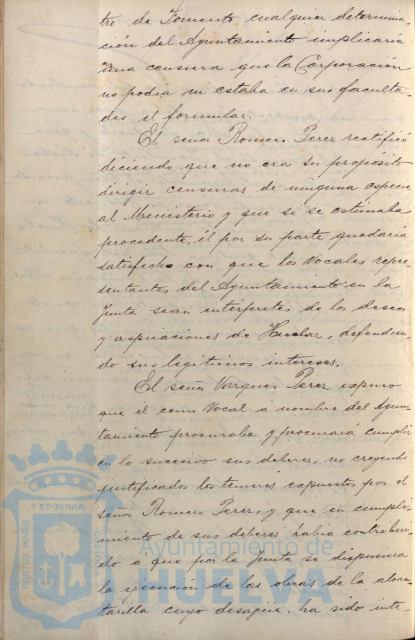 tro de Fomento, cualquier determina-
ción del Ayuntamiento implicaria
una censura que la Corporación
no podia ni estaba en sus faculta-
des el formular.
El señor Romero Perez rectificó
diciendo que no era su proposito
dirigir censuras de ninguna especie
al Ministerio y que si se estimaba
procedente, él por su parte quedaria
satisfecho con que los Vocales repre-
sentantes del Ayuntamiento en la
Junta sean intérpretes de los deseos
y aspiraciones de Huelva, defendien-
do sus legitimos intereses.
El señor Vazquez Perez expuso
que él como Vocal a nombre del Ayun-
tamiento procuraba y procurará cumplir
en lo sucesivo sus deberes, no creyendo
justificados los temores expuestos por el
señor Romero Perez, y que en cumpli-
miento de sus deberes habia contribui-
do a que por la Junta se dispusiera
la ejecución de las obras de la alcan-
tarilla cuyo desague, ha sido inte-
PORTUS MARIS
ET TERRÆ
CUSTODIA
Ayuntamiento de
HUELVA